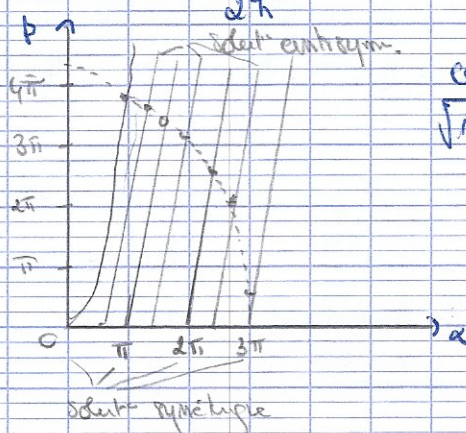 2ħ
p
solut° antisym.
4π
3π
2π
π
O π 2π 3π α
solut° symétrique